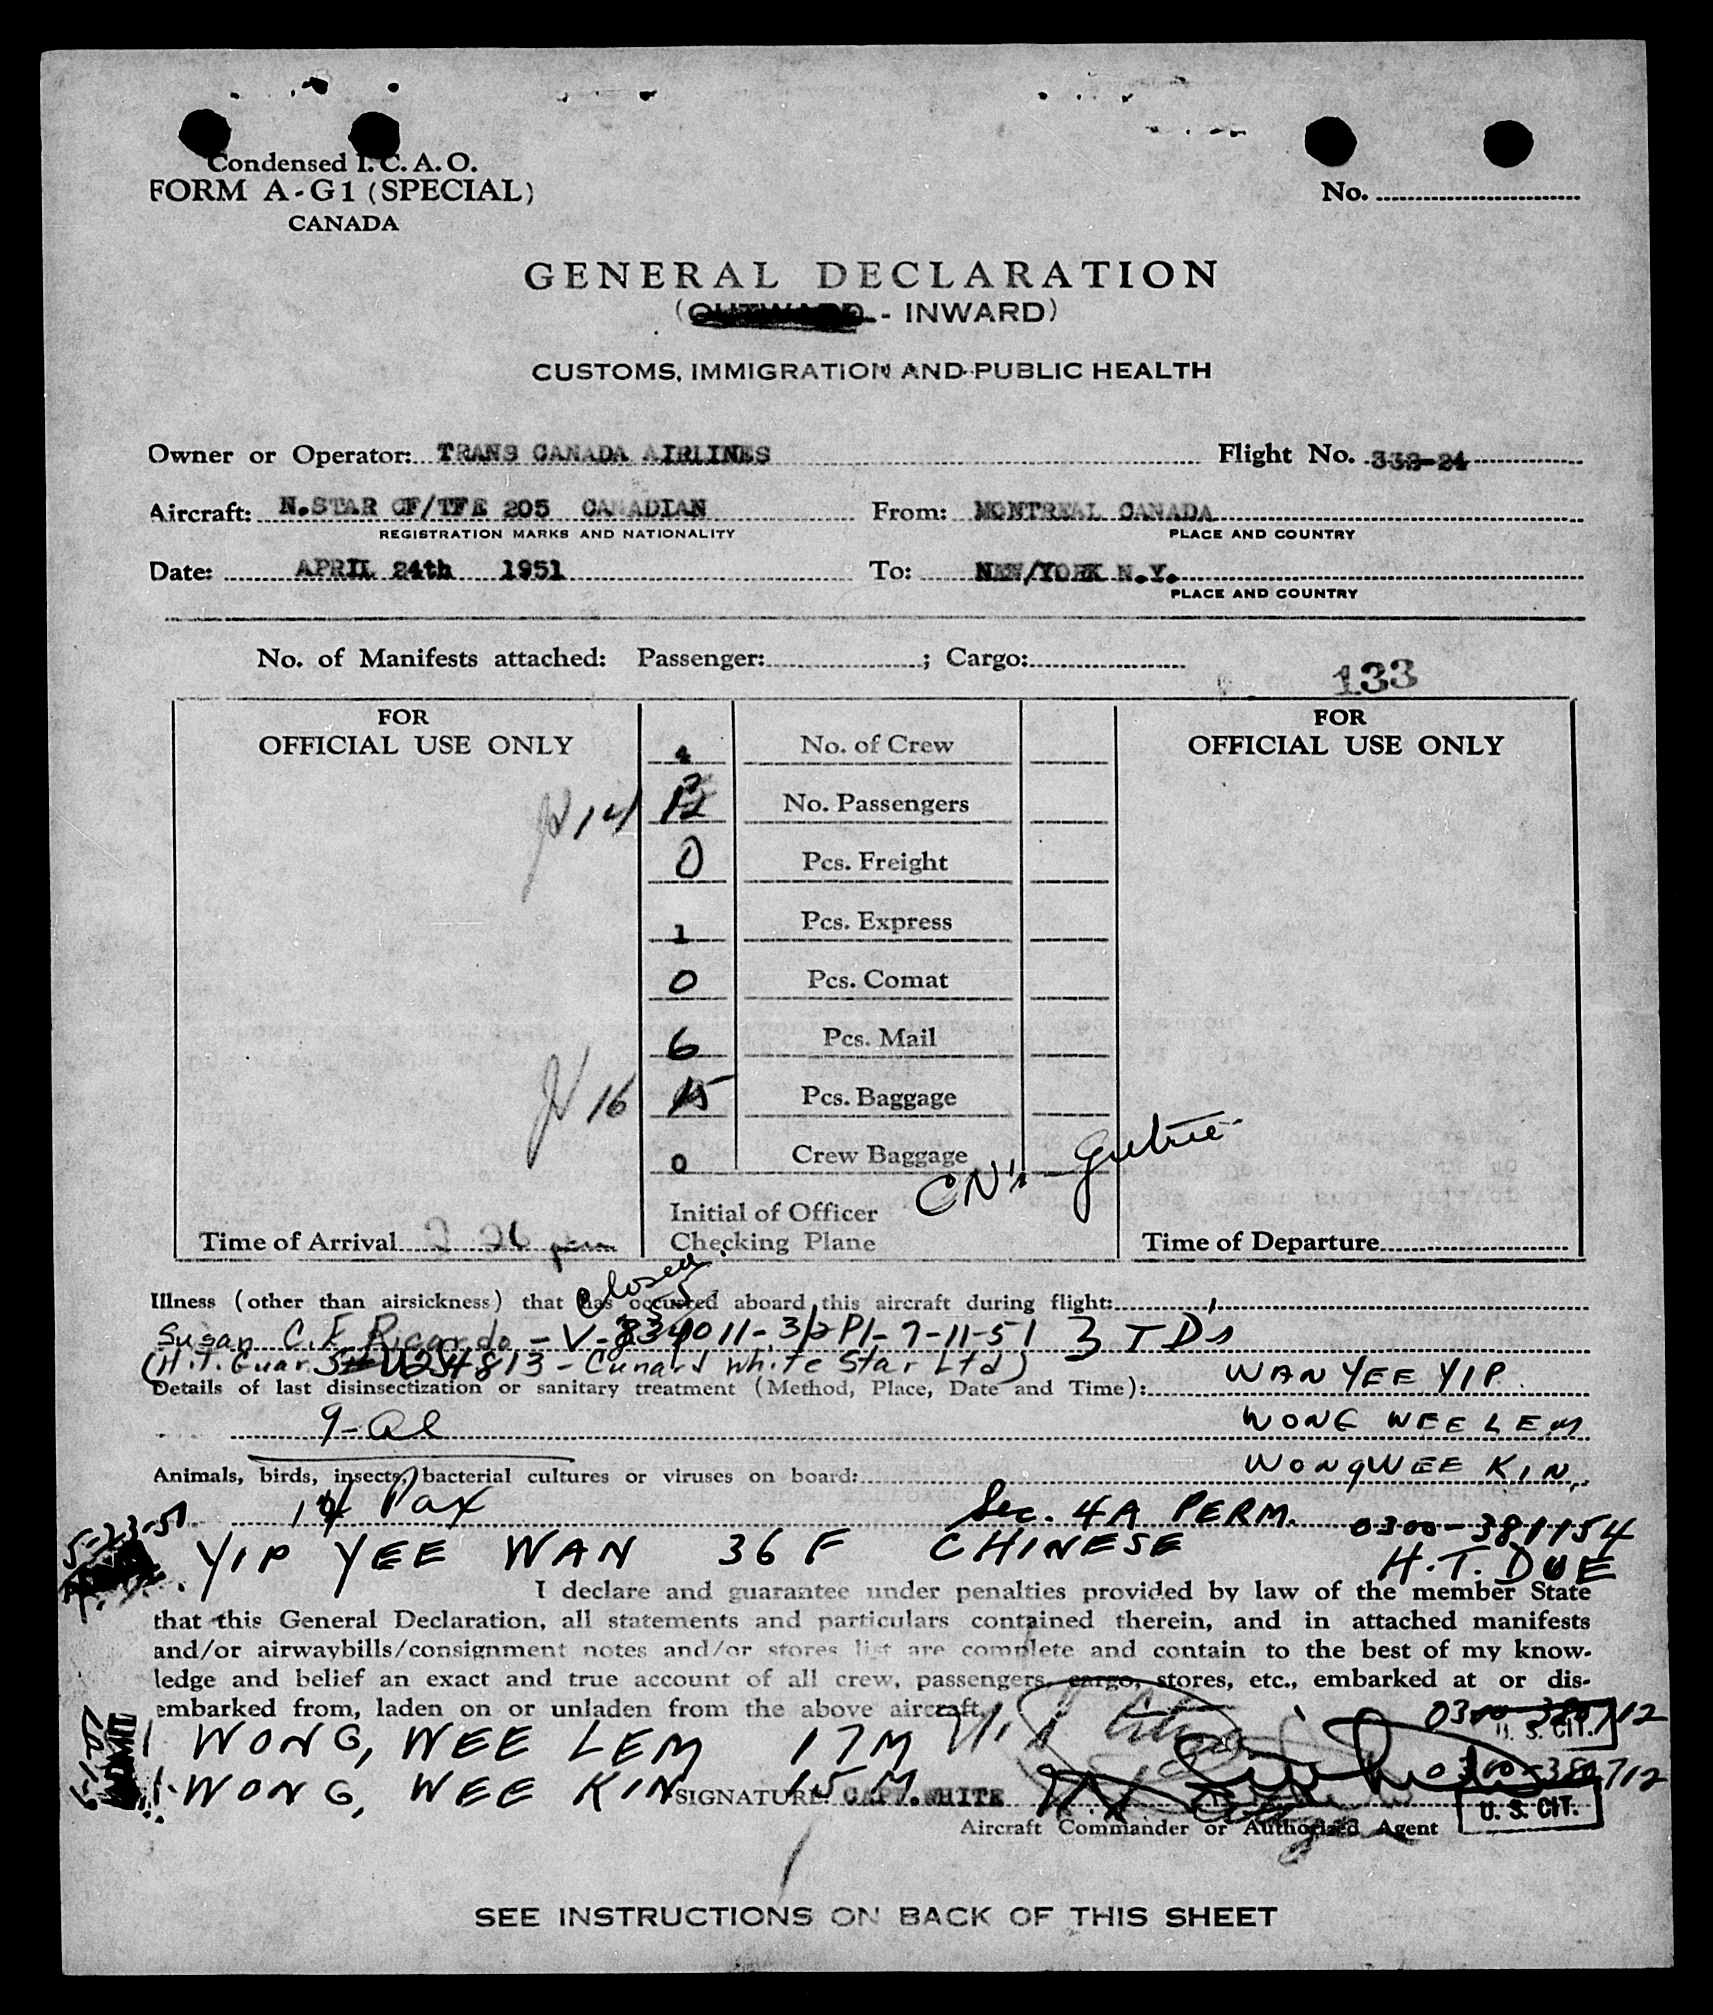 Condensed I.C.A.O.
FORM A-G1 (SPECIAL)
CANADA
No.
GENERAL DECLARATION
(OUTWARD - INWARD)
CUSTOMS, IMMIGRATION AND PUBLIC HEALTH
Owner or Operator: TRANS CANADA AIRLINES Flight No. 332-24
Aircraft: N.STAR CF/TFE 205 CANADIAN From: MONTREAL CANADA
REGISTRATION MARKS AND NATIONALITY PLACE AND COUNTRY
Date: APRIL 24th 1951 To: NEW/YORK N.Y.
PLACE AND COUNTRY
No. of Manifests attached: Passenger: ; Cargo:
133
FOR FOR
OFFICIAL USE ONLY OFFICIAL USE ONLY
4 No. of Crew
14 12 No. Passengers
0 Pcs. Freight
1 Pcs. Express
0 Pcs. Comat
6 Pcs. Mail
16 15 Pcs. Baggage
0 Crew Baggage
Initial of Officer
Time of Arrival 2 26 pm Checking Plane Time of Departure
closed
Illness (other than airsickness) that has occurred aboard this aircraft during flight:
Susan C.E. Ricardo - V-834011-3/2 P1-7-11-51 3 TD's
(H.T. Guar. 254813 - Cunard White Star Ltd) WAN YEE YIP
Details of last disinsectization or sanitary treatment (Method, Place, Date and Time):
9-al WONG WEE LEM
Animals, birds, insects, bacterial cultures or viruses on board: WONG WEE KIN
14 Pax Sec. 4A PERM. 0300-381154
5-23-51 YIP YEE WAN 36 F CHINESE H.T. DUE
I declare and guarantee under penalties provided by law of the member State
that this General Declaration, all statements and particulars contained therein, and in attached manifests
and/or airwaybills/consignment notes and/or stores list are complete and contain to the best of my know-
ledge and belief an exact and true account of all crew, passengers, cargo, stores, etc., embarked at or dis-
embarked from, laden on or unladen from the above aircraft.
WONG, WEE LEM 17 M 0300-380712
U. S. CIT.
WONG, WEE KIN 15 M 0300-380712
SIGNATURE CAPT. WHITE U. S. CIT.
Aircraft Commander or Authorized Agent
SEE INSTRUCTIONS ON BACK OF THIS SHEET